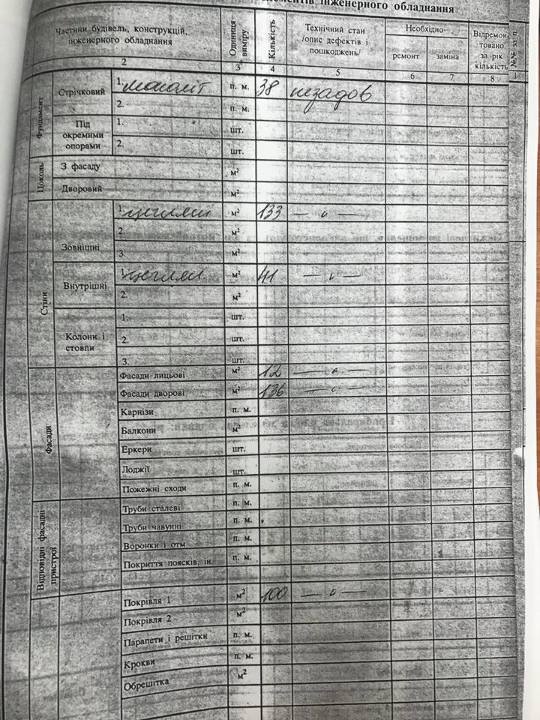 ментів інженерного обладнання
Частини будівель, конструкцій, інженерного обладнання
Одиниця виміру
Кількість
Технічний стан /опис дефектів і пошкоджень/
Необхідно
ремонт заміна
Відремонтовано за рік кількість
№№ за п.
2 3 4 5 6 7 8 1
Фундамент
Стрічковий 1. моноліт п. м. 38 незадов
2. п. м.
Під окремими опорами 1. шт.
2. шт.
Цоколь
З фасаду м²
Дворовий м²
Стіни
Зовнішні 1. цеглян м² 133 — " —
2. м²
3. м²
Внутрішні 1. цеглян м² 41 — " —
2. м²
Колони і стовпи 1. шт.
2. шт.
3. шт.
Фасади
Фасади лицьові м² 12 — " —
Фасади дворові м² 136 — " —
Карнізи п. м.
Балкони м²
Еркери шт.
Лоджії шт.
Пожежні сходи п. м.
Відповідні фасади пристрої
Труби сталеві п. м.
Труби чавунні п. м.
Воронки і отм п. м.
Покриття поясків, ін. п. м.
Покрівля 1 м² 100 — " —
Покрівля 2 м²
Парапети і решітки п. м.
Крокви п. м.
Обрешітка м²